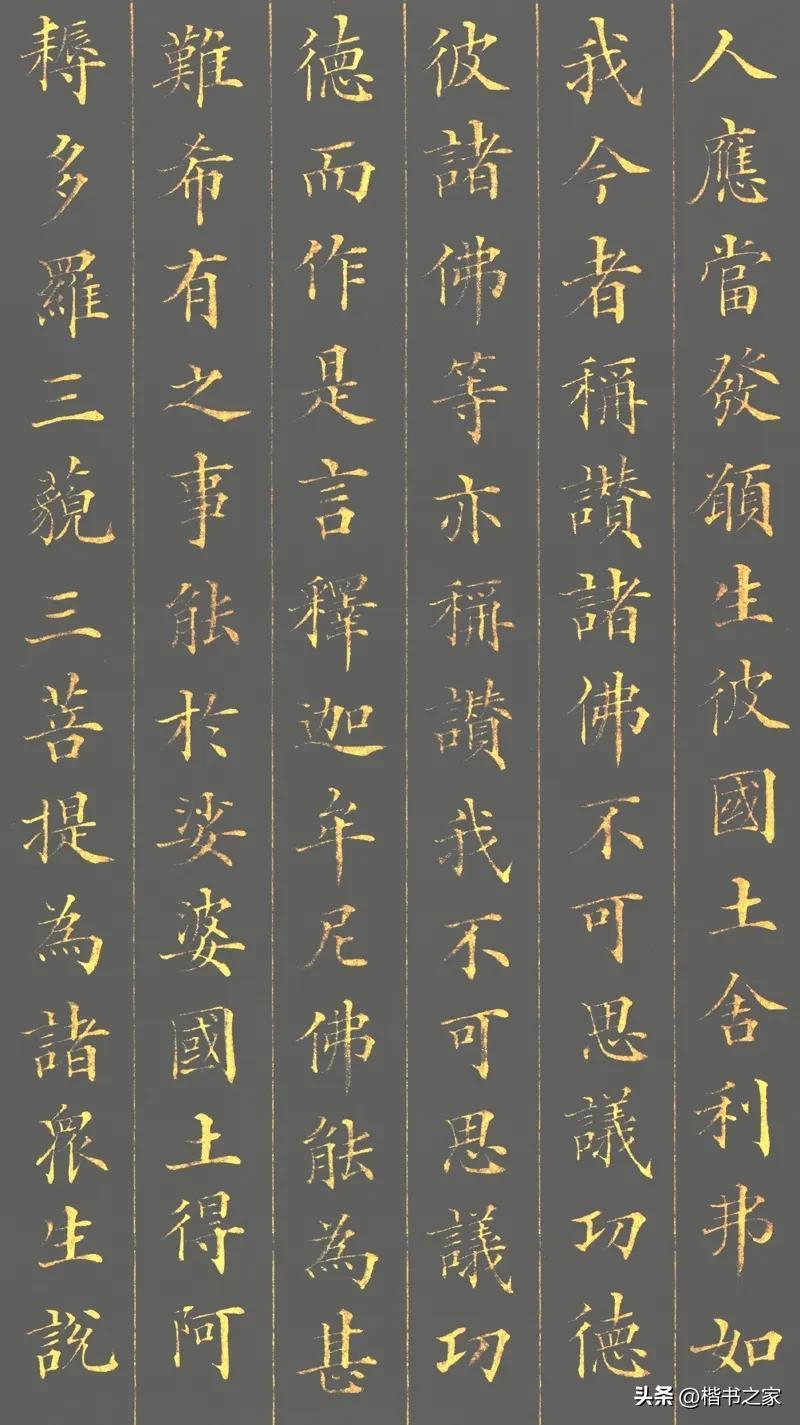 人應當發願生彼國土舍利弗如
我今者稱讚諸佛不可思議功德
彼諸佛等亦稱讚我不可思議功
德而作是言釋迦牟尼佛能為甚
難希有之事能於娑婆國土得阿
耨多羅三藐三菩提為諸眾生說
头条 @楷书之家